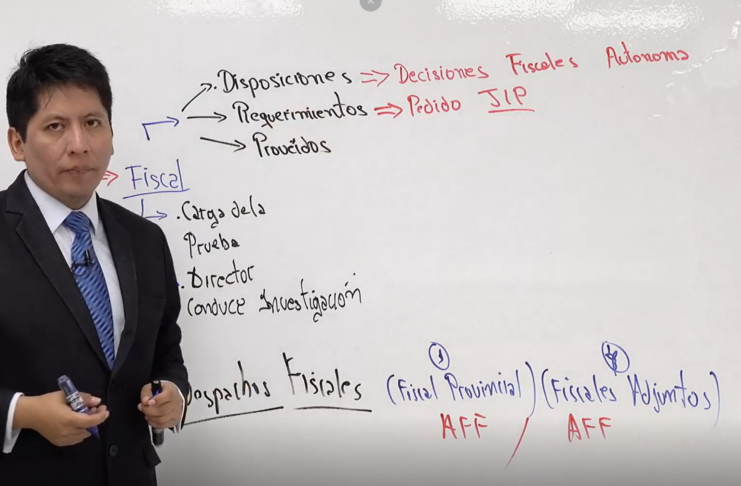 .Disposiciones ⇒ Decisiones Fiscales Autonoma
→ Requerimientos ⇒ Pedido JIP
→ Proveídos
⇒ Fiscal
.Carga de la
Prueba
.Director
Conduce Investigación
Despachos Fiscales (Fiscal Provincial) (Fiscales Adjuntos)
AFF / AFF